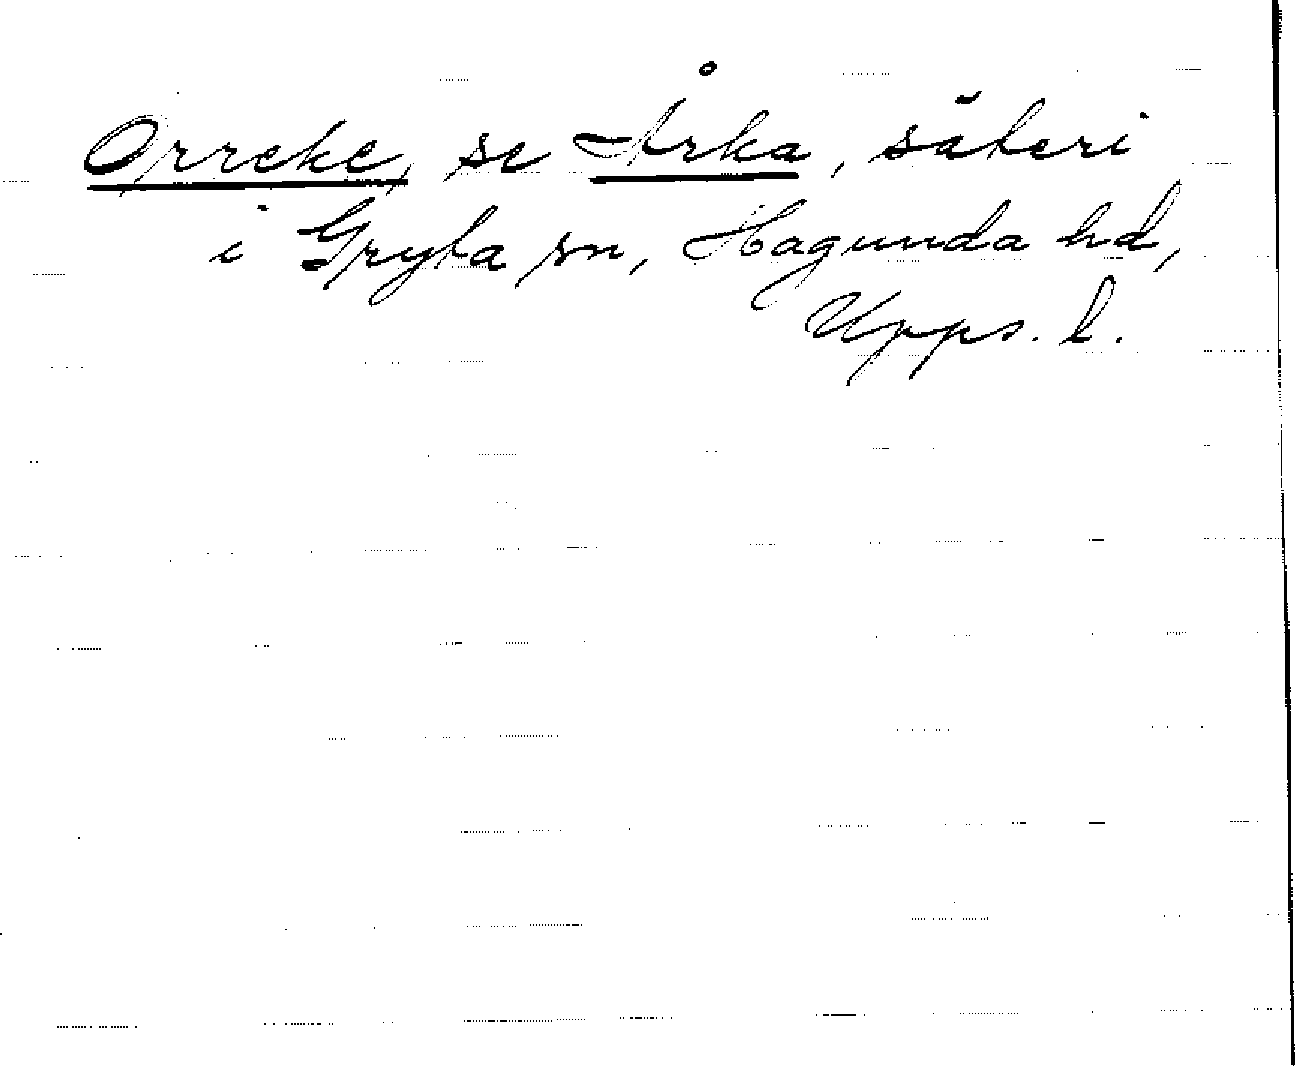 Orreke, se Årka, säteri
i Gryta sn, Hagunda hd,
Upps. l.